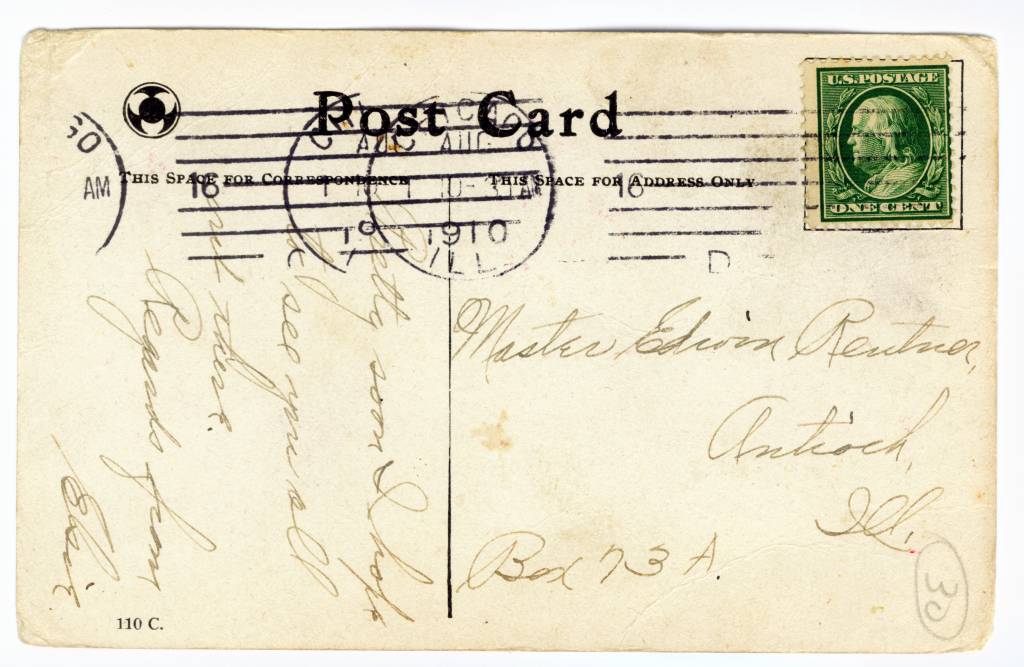 Post Card
THIS SPACE FOR CORRESPONDENCE
THIS SPACE FOR ADDRESS ONLY
U.S.POSTAGE
ONE CENT
AM
16
AUG
10-3 AM
1910
ILL
16
D
Pretty soon I hope
to see you all
out there.
Regards from
Elsie
Master Edwin Rentner,
Antioch,
Ill.
Box 73 A.
30
110 C.